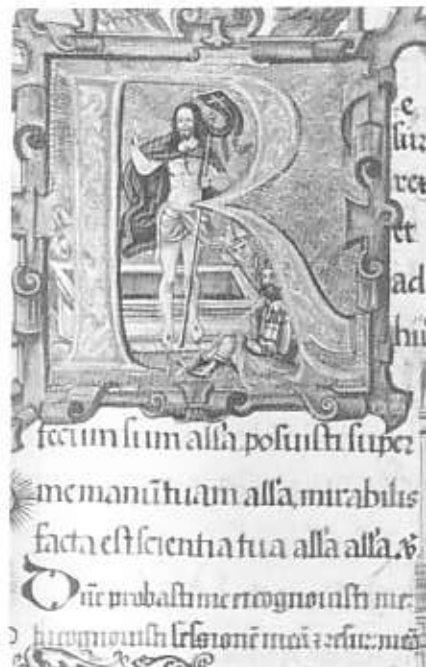 R
e
sur
rex
et
ad
hū
tecum sum alľa posuisti super
me manū tuam alľa, mirabilis
facta est scientia tua alľa alľa. 
Dñe probasti me et cognouisti me:
tu cognouisti sessionē meā & resur. meā